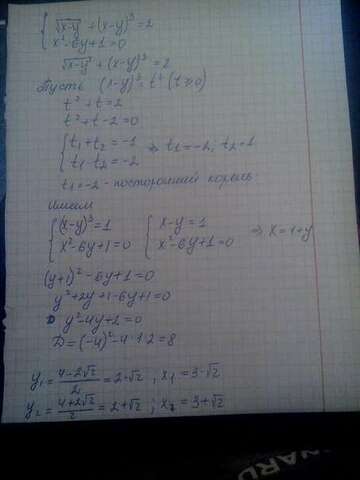 { √(x-y) + (x-y)³ = 2
x² - 6y + 1 = 0
√(x-y) + (x-y)³ = 2
Пусть (x-y)³ = t² (t ≥ 0)
t² + t = 2
t² + t - 2 = 0
{ t₁ + t₂ = -1 ⇒ t₁ = -2, t₂ = 1
t₁ · t₂ = -2
t₁ = -2 - посторонний корень.
имеем
{ (x-y)³ = 1 { x - y = 1 ⇒ x = 1 + y
x² - 6y + 1 = 0 x² - 6y + 1 = 0
(y+1)² - 6y + 1 = 0
y² + 2y + 1 - 6y + 1 = 0
y² - 4y + 2 = 0
D = (-4)² - 4·1·2 = 8
y₁ = (4 - 2√2)/2 = 2 - √2, x₁ = 3 - √2
y₂ = (4 + 2√2)/2 = 2 + √2; x₂ = 3 + √2
WARD